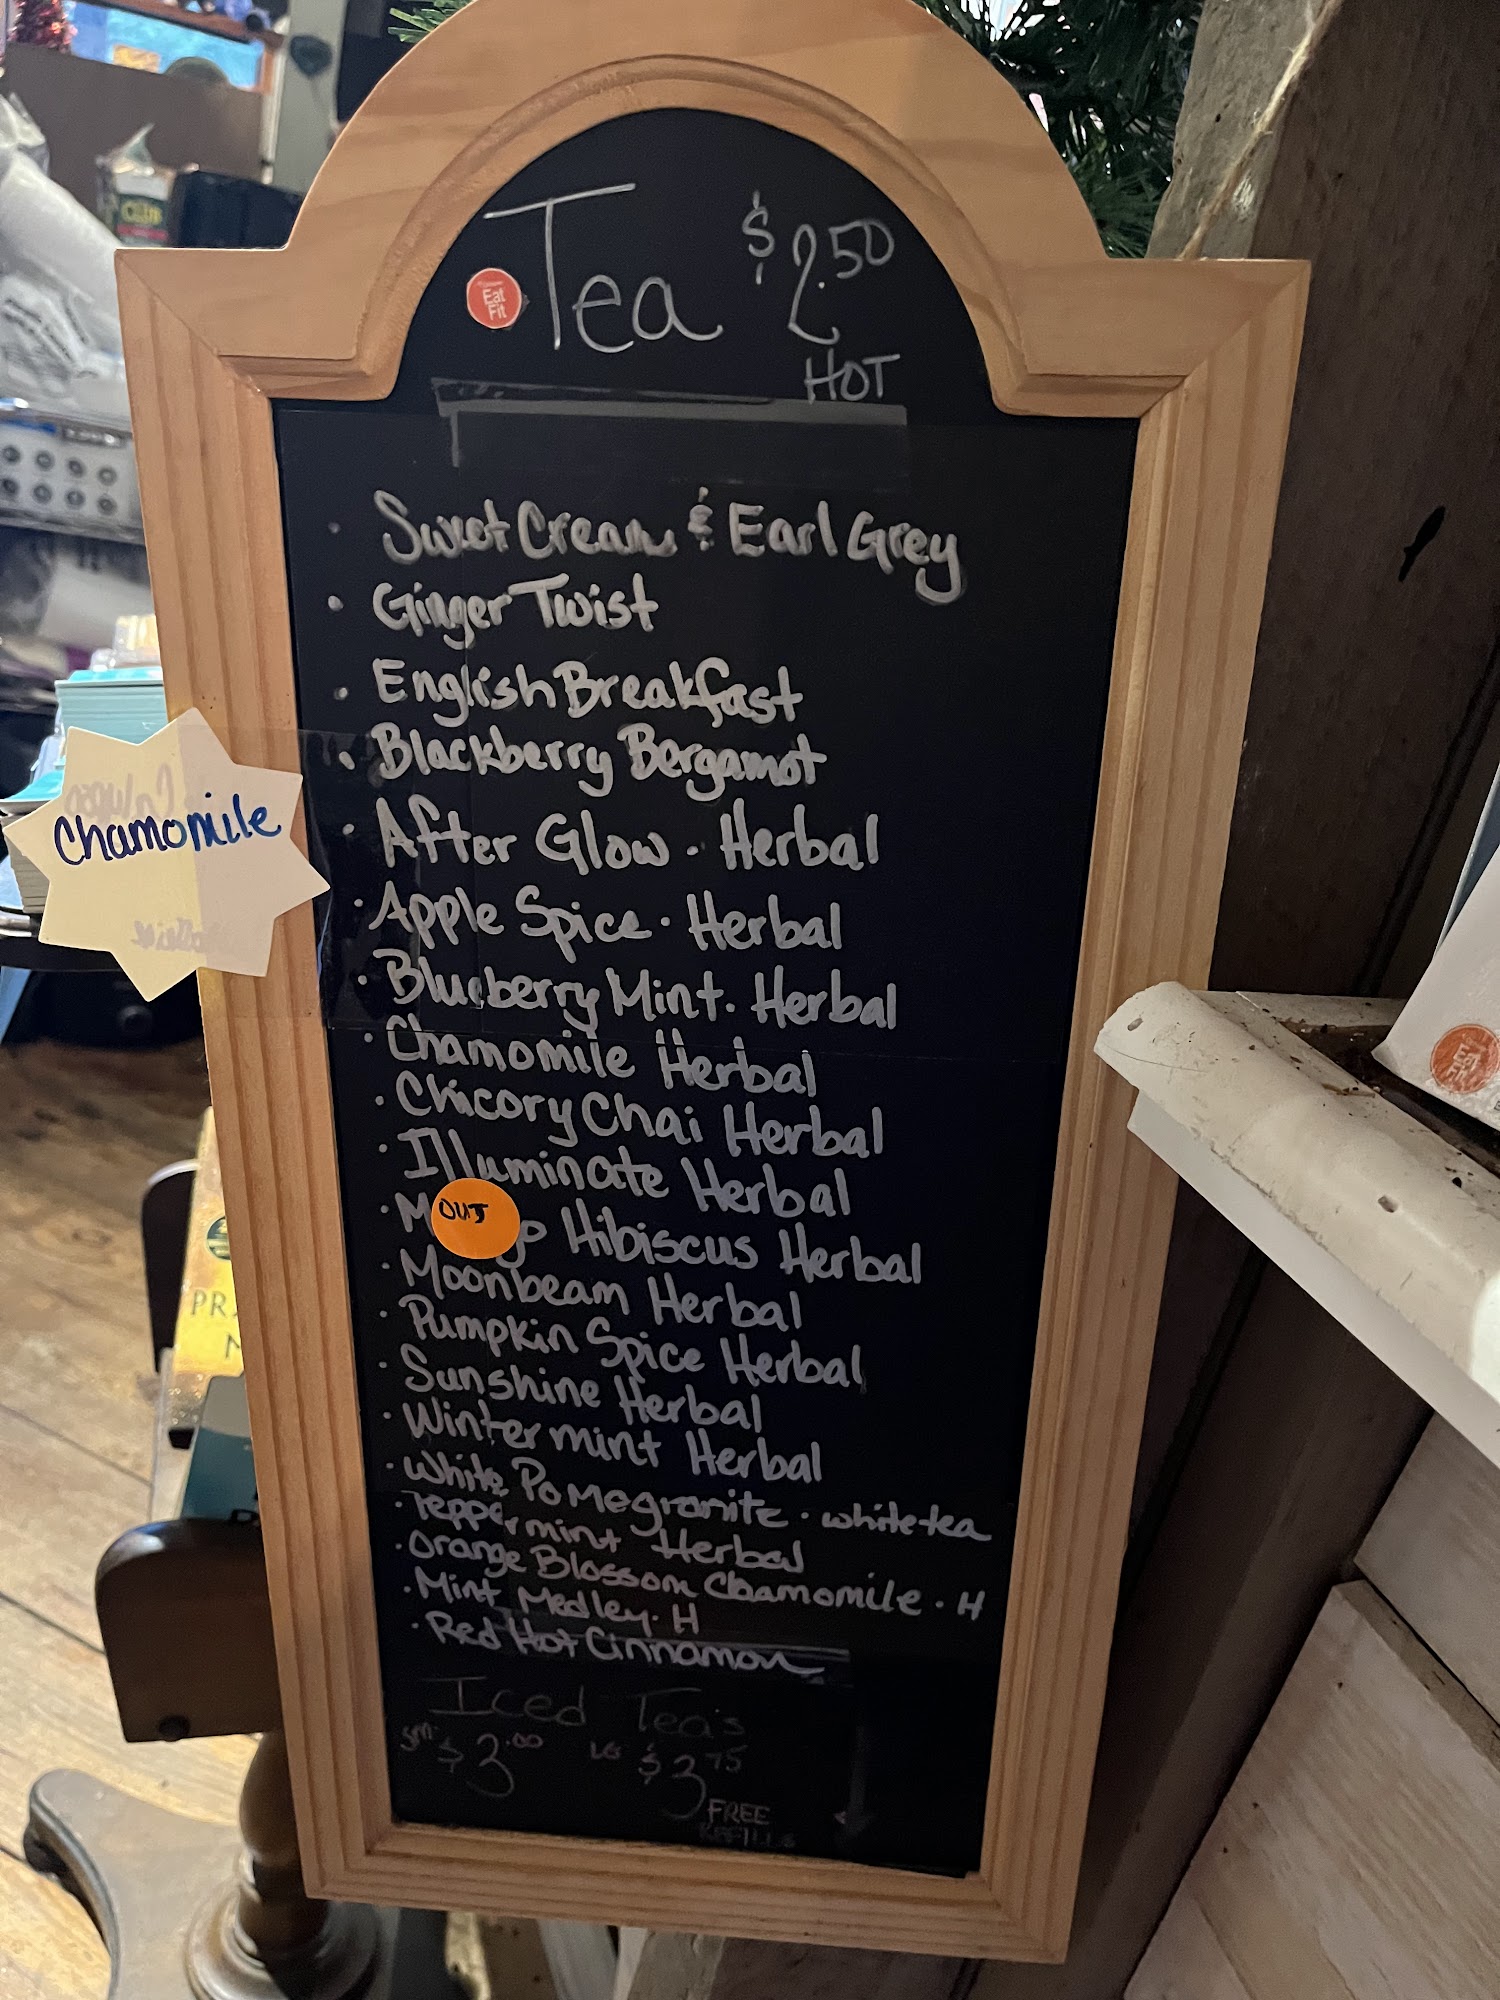 Tea $2.50
Eat
Fit
HOT
· Sweet Cream & Earl Grey
· Ginger Twist
· English Breakfast
· Blackberry Bergamot
Chamomile
· After Glow · Herbal
· Apple Spice · Herbal
· Blueberry Mint · Herbal
· Chamomile Herbal
· Chicory Chai Herbal
· Illuminate Herbal
OUT
· M go Hibiscus Herbal
· Moonbeam Herbal
· Pumpkin Spice Herbal
· Sunshine Herbal
· Wintermint Herbal
· White Pomegranite · white tea
· Peppermint Herbal
· Orange Blossom Chamomile · H
· Mint Medley · H
· Red Hot Cinnamon
Iced Tea's
sm. $3.00 LG $3.75
FREE
REFILLS
CLUB
PR
Eat
Fit